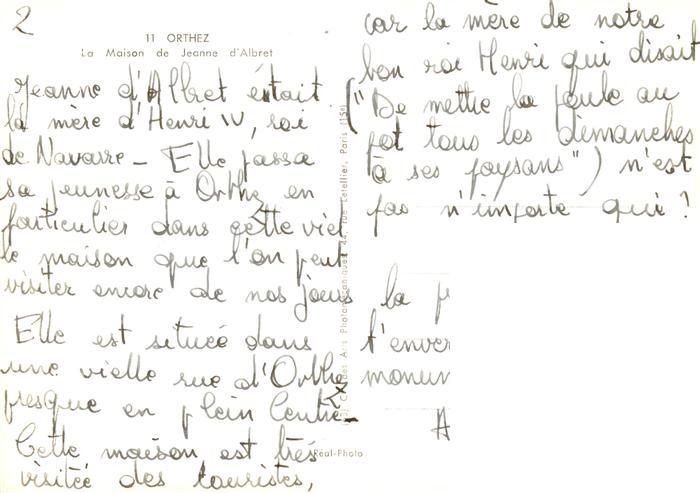 2
11 ORTHEZ
La Maison de Jeanne d'Albret
Jeanne d'Albret était
la mère d'Henri IV, roi
de Navarre - Elle passa
sa jeunesse à Orthez en
particulier dans cette viel
le maison que l'on peut
visiter encore de nos jours
Elle est située dans
une vielle rue d'Orthez
presque en plein Centre-
Cette maison est très
visitée des touristes,
car la mère de notre
bon roi Henri qui disait
("De mettre la poule au
pot tous les dimanches
à ses paysans") n'est
pas n'importe qui ?
la p
t'enver
monum
A
des Arts Photomécaniques, 44, rue Letellier, Paris (15e)
Réal-Photo